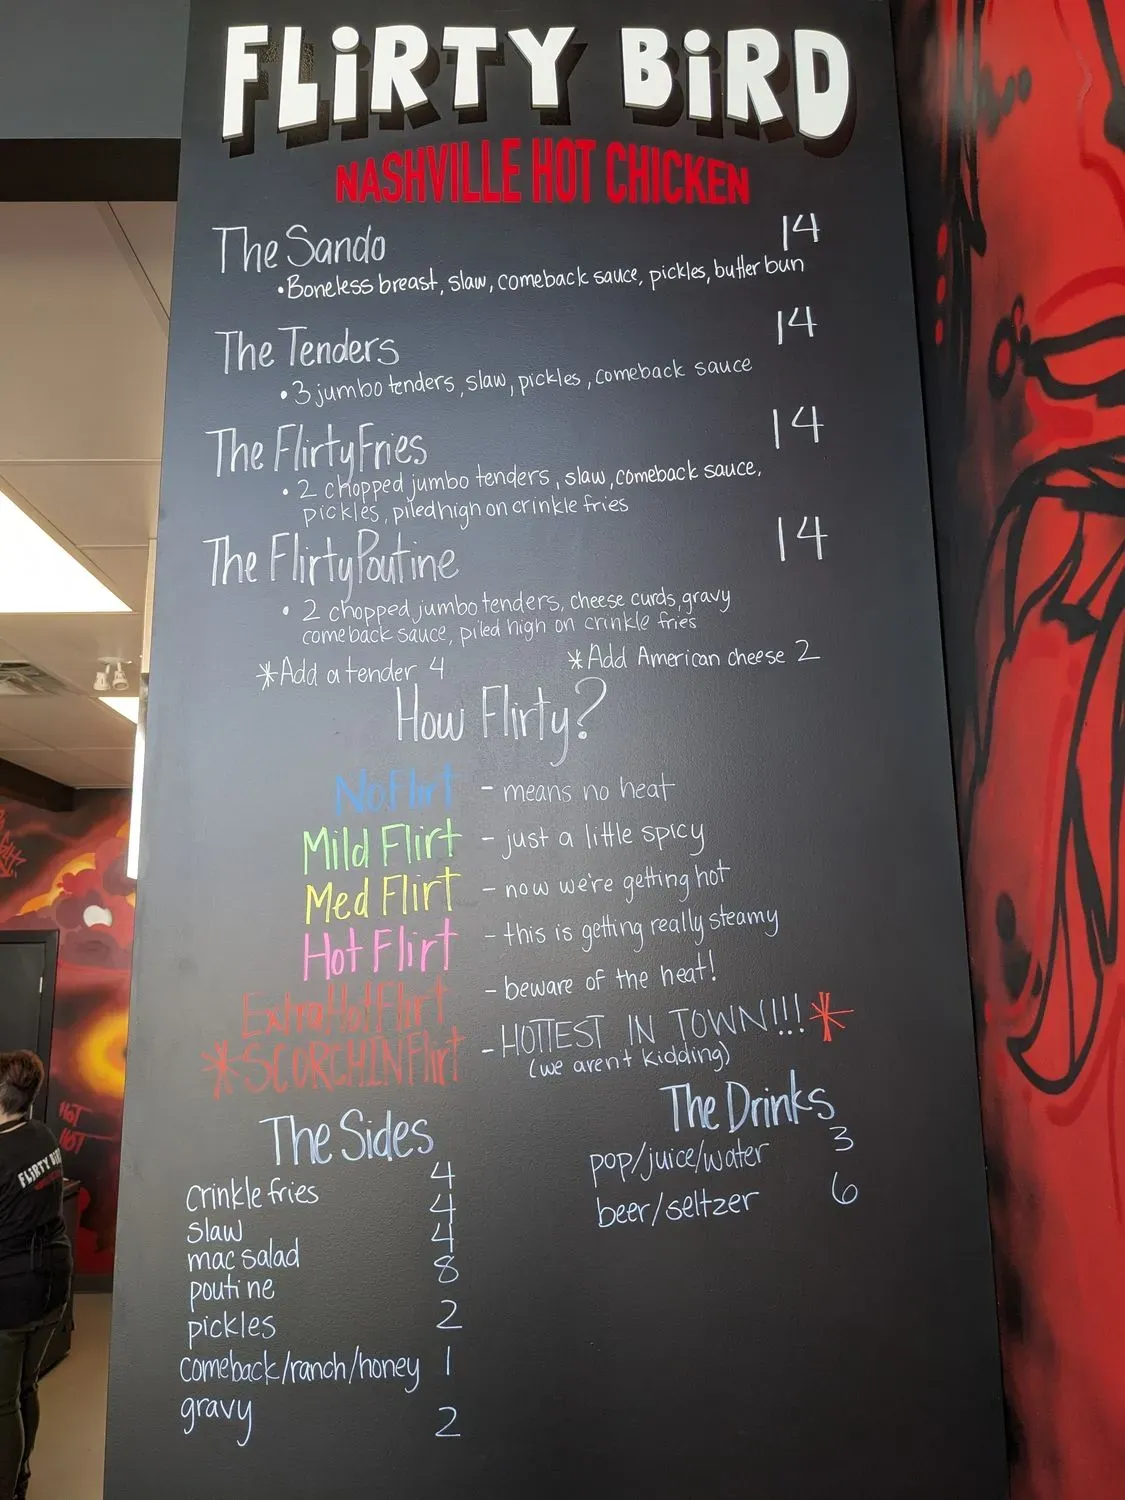 FLiRTY BiRD
NASHVILLE HOT CHICKEN
The Sando 14
• Boneless breast, slaw, comeback sauce, pickles, butter bun
The Tenders 14
• 3 jumbo tenders, slaw, pickles, comeback sauce
The Flirty Fries 14
• 2 chopped jumbo tenders, slaw, comeback sauce,
pickles, piled high on crinkle fries
The Flirty Poutine 14
• 2 chopped jumbo tenders, cheese curds, gravy
comeback sauce, piled high on crinkle fries
*Add a tender 4 *Add American cheese 2
How Flirty?
No Flirt - means no heat
Mild Flirt - just a little spicy
Med Flirt - now we're getting hot
Hot Flirt - this is getting really steamy
Extra Hot Flirt - beware of the heat!
*SCORCHIN Flirt - HOTTEST IN TOWN!!!*
(we aren't kidding)
The Sides
crinkle fries 4
slaw 4
mac salad 4
poutine 8
pickles 2
comeback/ranch/honey 1
gravy 2
The Drinks
pop/juice/water 3
beer/seltzer 6
HOT
HOT
FLiRTY BiRD